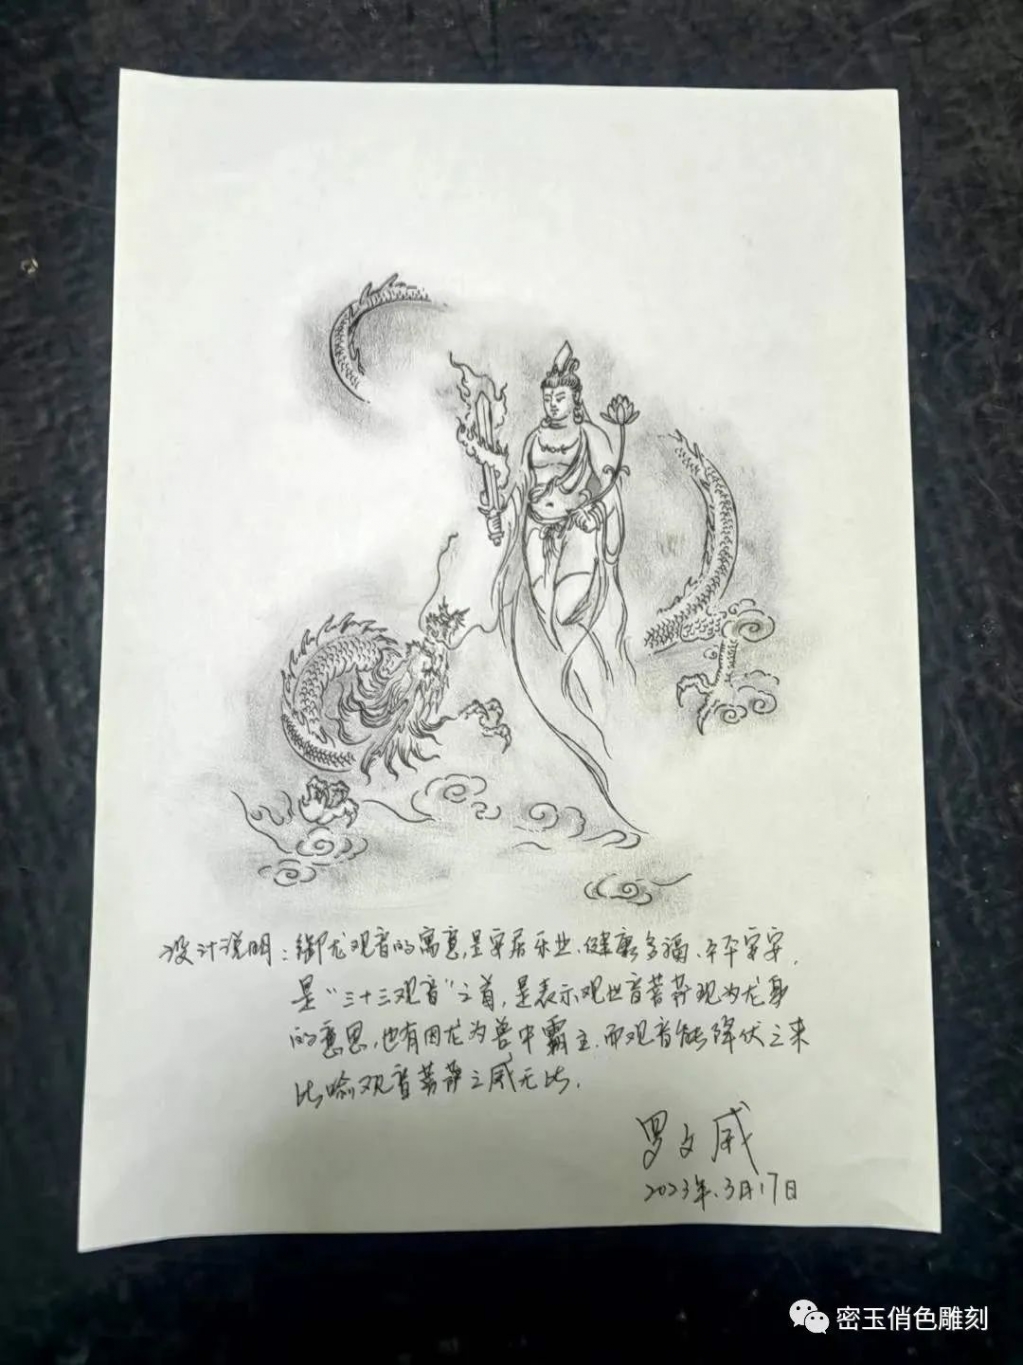 设计说明：御龙观音的寓意，是安居乐业、健康多福、平平安安，
是“三十三观音”之首，是表示观世音菩萨现为龙身
的意思，也有因龙为兽中霸主，而观音能降伏之来
比喻观音菩萨之威无比。
罗文威
2023年.3月17日
密玉俏色雕刻